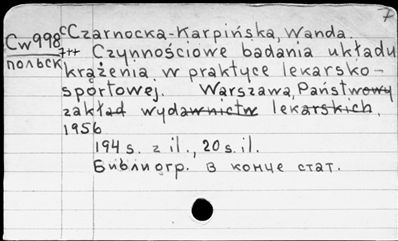 7
Cw998 cCzarnocka-Karpińska, Wanda.
777 Czynnościowe badania układu
польск krążenia w praktyce lekarsko-
sportowej. Warszawa, Państwowy
zakład wydawnictw lekarskich,
1956
194 s. z il., 20 s. il.
Библиогр. в конце стат.